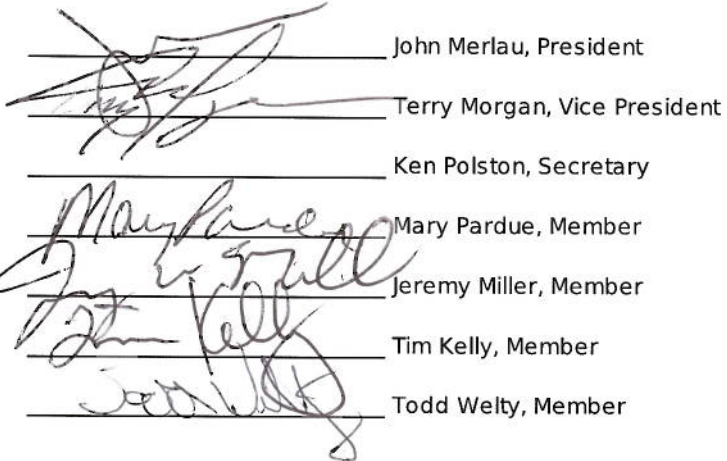 John Merlau, President
Terry Morgan, Vice President
Ken Polston, Secretary
Mary Pardue Mary Pardue, Member
Jeremy Miller, Member
Tim Kelly Tim Kelly, Member
Todd Welty, Member